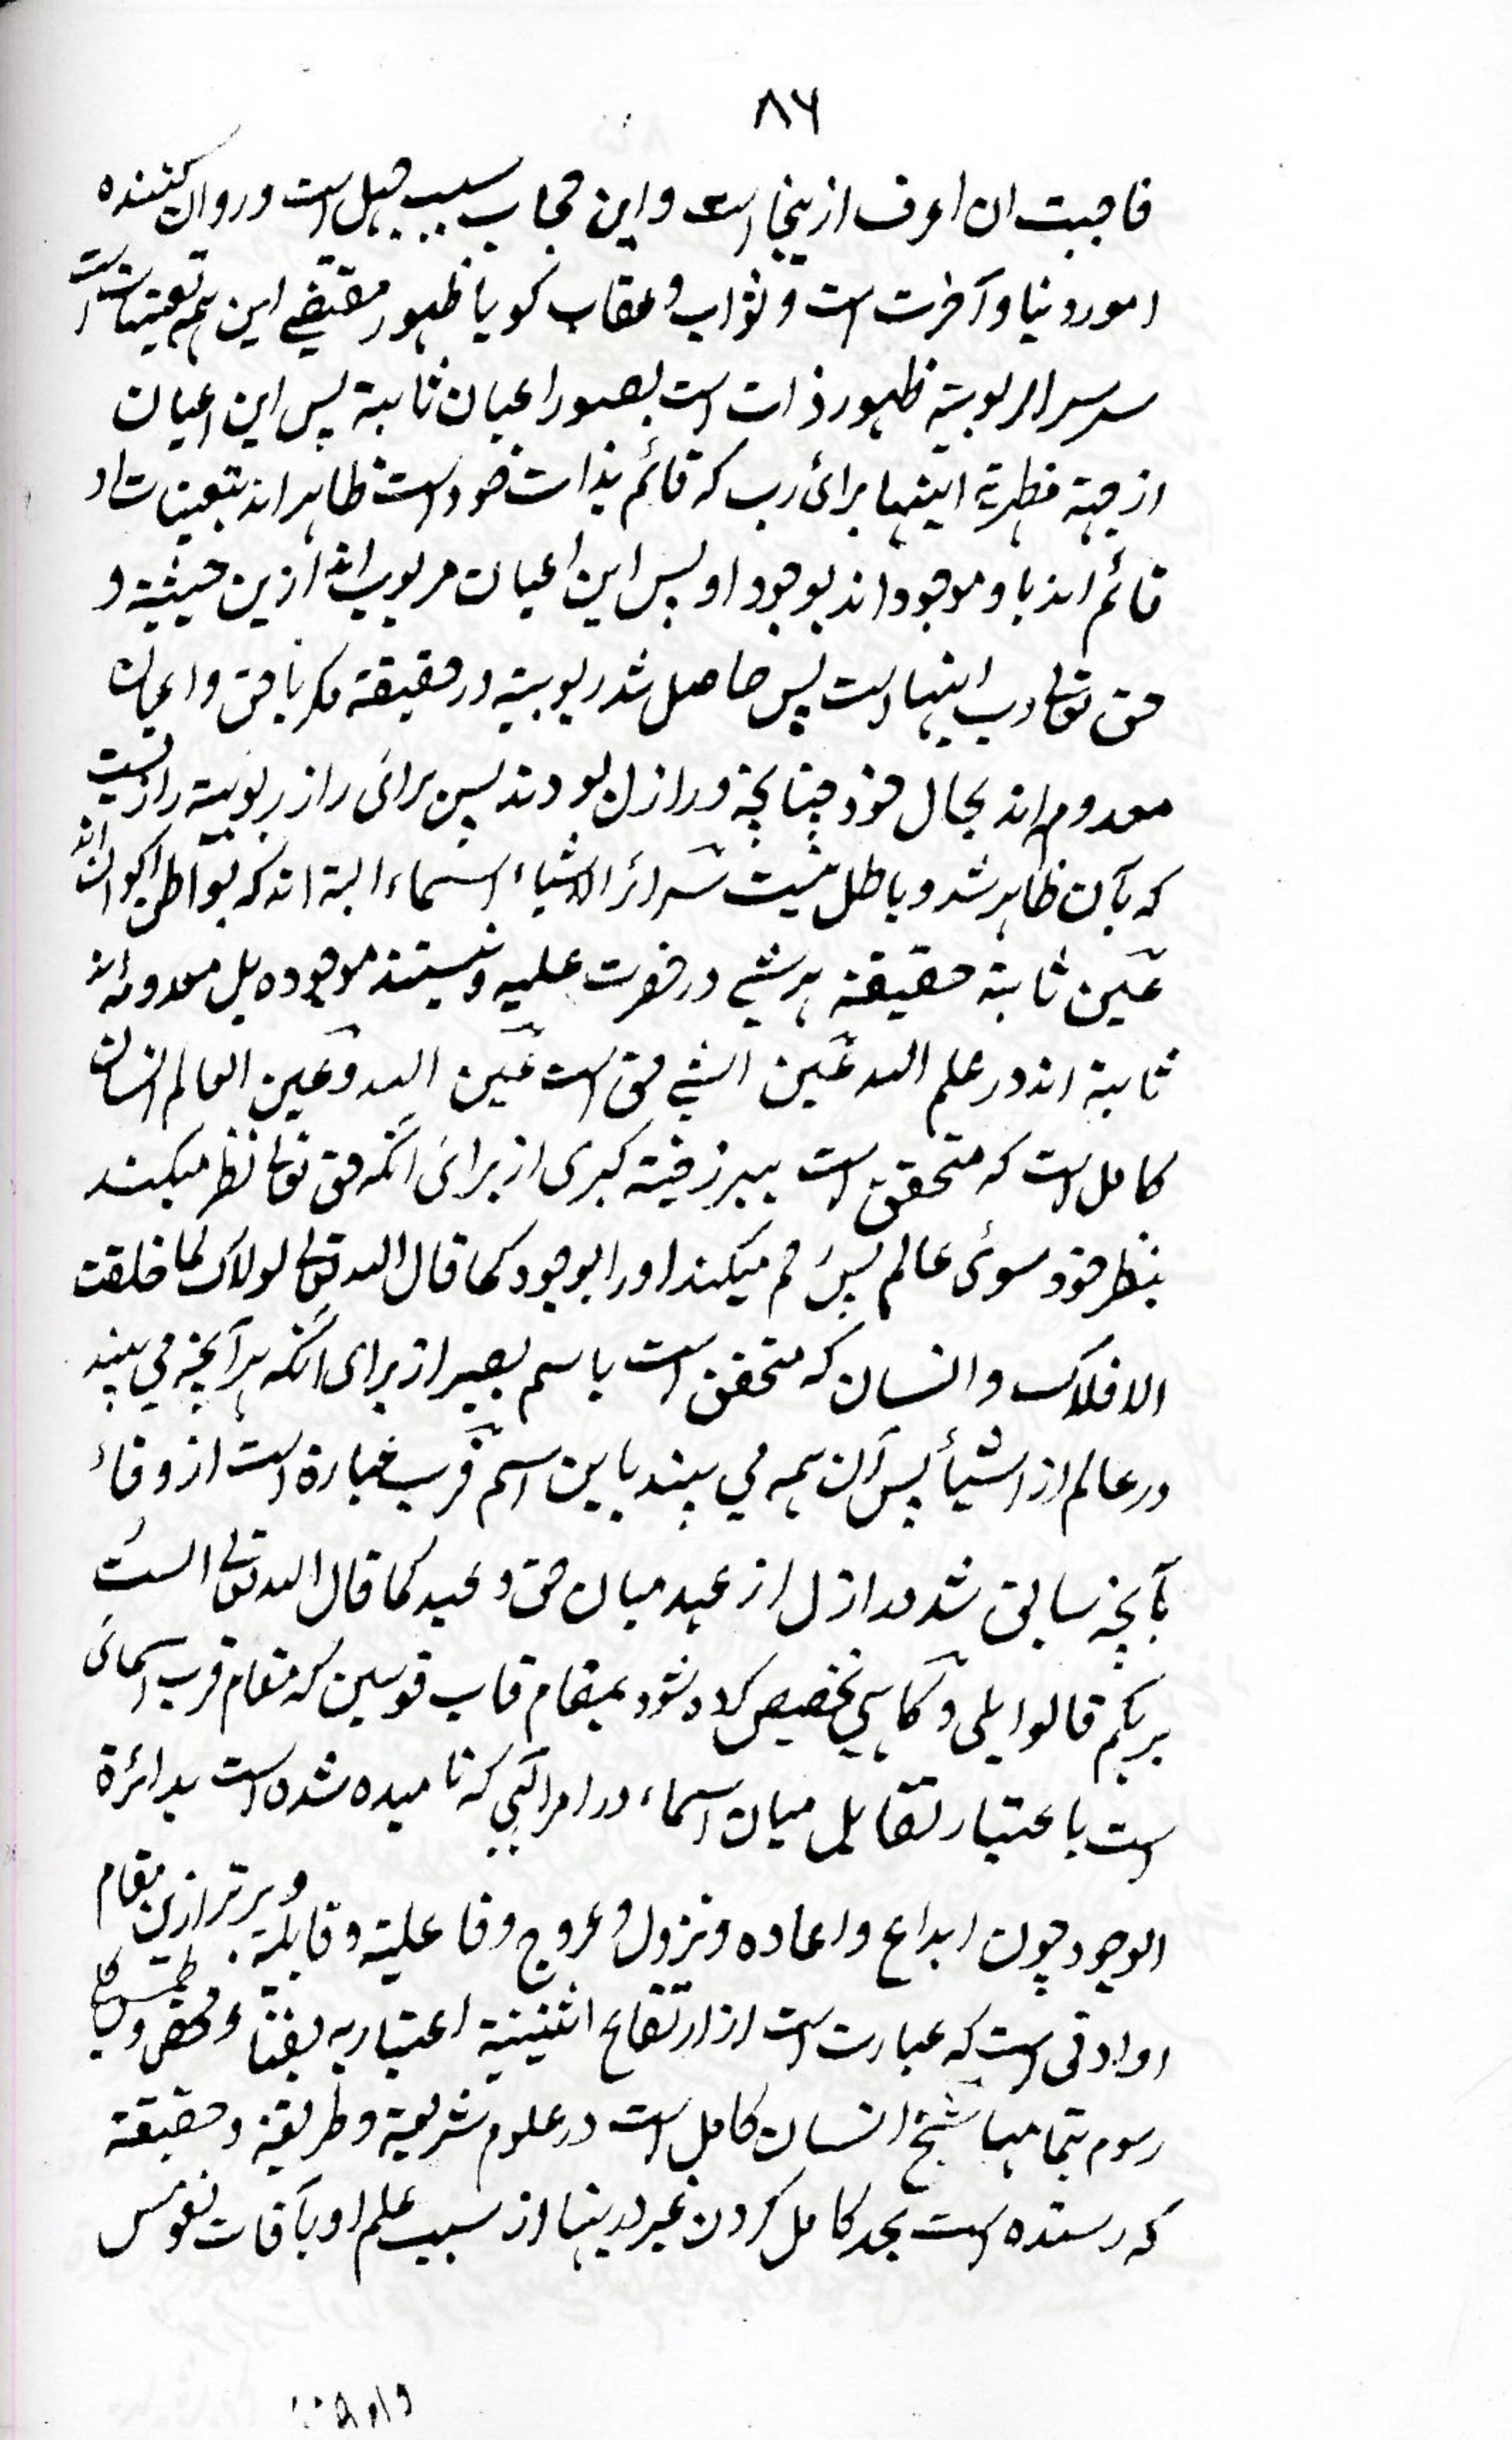 ۸۶
فاحببت ان اعرف ازینجا است و این حجاب سبب جهل است و روان کننده
امور دنیا و آخرت است و ثواب و عقاب کویا ظهور مقتضی این همه تعینات است
سر سر الربوبیته ظهور ذات است بصور اعیان ثابته پس این اعیان
از جهته مظهریة اینها برای رب که قائم بذات خود است ظاهر اند بتعینات او
قائم اند باو موجود اند بوجود او پس این اعیان مربوب اند ازین حیثیته و
حق تعالی رب اینها است پس حاصل نشد ربوبیته در حقیقة مکر با حق و اعیان
معدوم اند بحال خود چنانچه در ازل بودند پس برای راز ربوبیته رازیست
که بآن ظاهر شد و باطل نیست سرائر الاشیاء اسماء الهیة اند که بواطن اکوان اند
عین ثابتة حقیقة هر شی در حضرت علمیه و نیستند موجوده بل معدومه اند
ثابته اند در علم الله عین الشی حق است عین الله و عین العالم انسان
کامل است که متحقق است ببرزخیته کبری از برای آنکه حق تعالی نظر میکند
بنظر خود سوی عالم پس رحم میکند او را بوجود کما قال الله تعالی لولاک لما خلقت
الافلاک و انسان که متحقق است باسم بصیر از برای آنکه هر آنچه می بیند
در عالم از اشیأ پس آن همه می بیند باین اسم قرب عبارة است از وفاء
بآنچه سابق شد در ازل از عهد میان حق و عبد کما قال الله تعالی الست
بربکم قالوا بلی و کاهی تخصیص کرده شود بمقام قاب قوسین که مقام قرب اسمائی
است باعتبار تقابل میان اسماء در امر الهی که نامیده شده است بدائرة
الوجود چون ابداع و اعاده و نزول و عروج و فاعلیته و قابلیة و برتر ازین مقام
او ادنی است که عبارت است از ارتفاع اثنینیة اعتباریه بفناء محض و طمس کلی
رسوم بتمامها شیخ انسان کامل است در علوم شریعة و طریقة و حقیقة
که رسنده است بحد کامل کردن غیر در اینها از سبب علم او بآفات نفوس